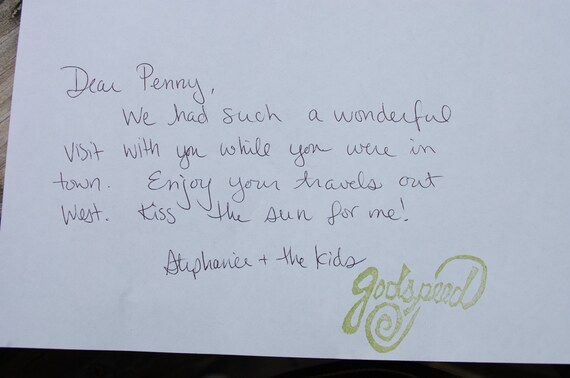 Dear Penny,
We had such a wonderful
visit with you while you were in
town. Enjoy your travels out
West. Kiss the sun for me!
Stephanie + the kids
godspeed